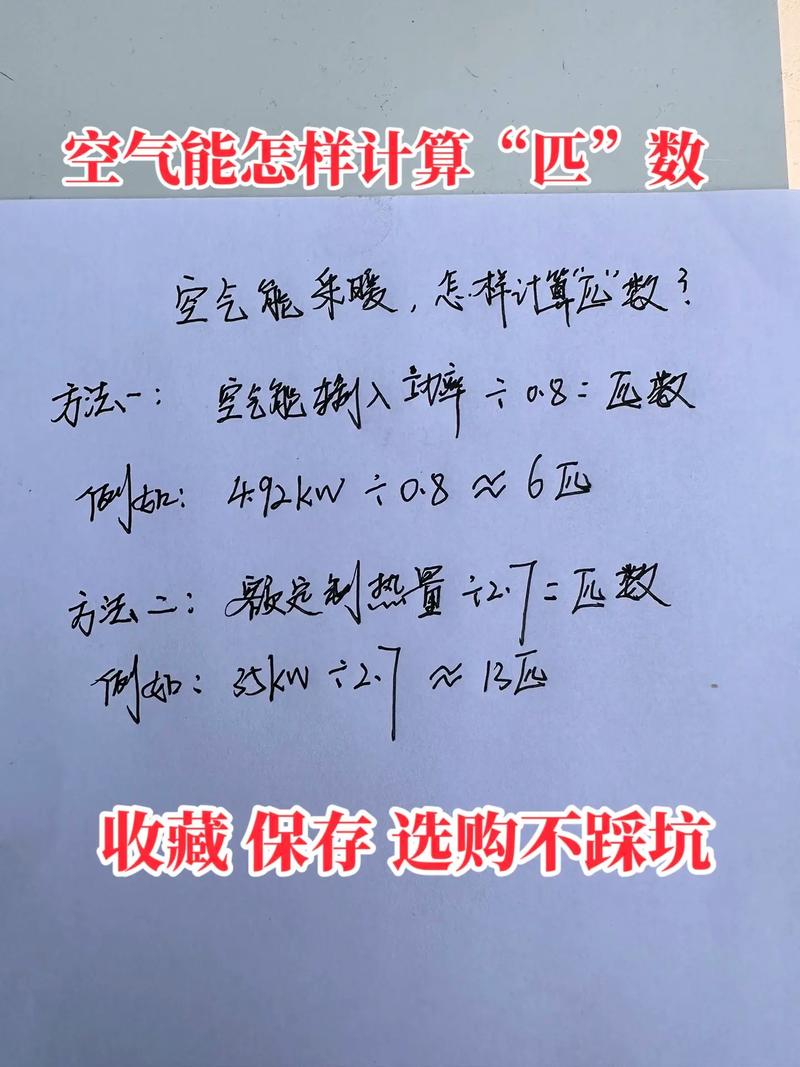 空气能怎样计算“匹”数
空气能采暖，怎样计算“匹”数？
方法一：空气能输入功率÷0.8=匹数
例如：4.92kW÷0.8≈6匹
方法二：额定制热量÷2.7=匹数
例如：35kW÷2.7≈13匹
收藏 保存 选购不踩坑